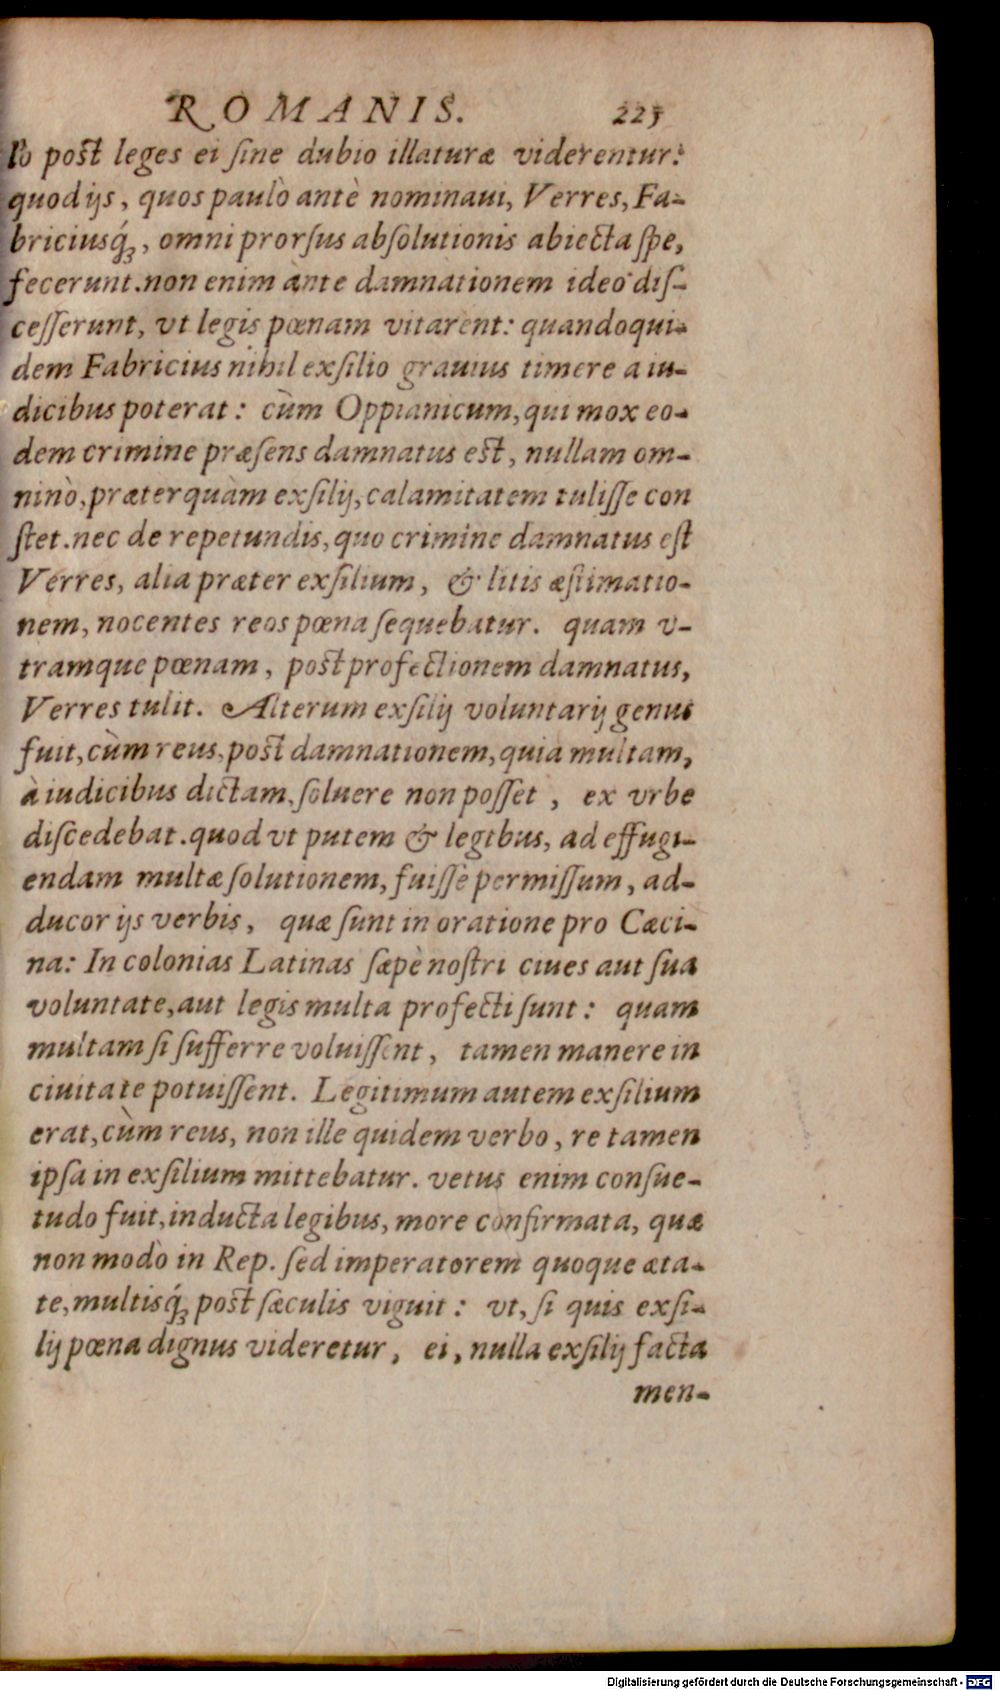 ROMANIS. 225
lo post leges ei ſine dubio illaturæ viderentur:
quod ijs, quos paulò antè nominaui, Verres, Fa-
briciusq́ꝫ, omni prorſus abſolutionis abiecta ſpe,
fecerunt. non enim ante damnationem ideo diſ-
ceſſerunt, vt legis pœnam vitarent: quandoqui-
dem Fabricius nihil exſilio grauius timere a iu-
dicibus poterat: cùm Oppianicum, qui mox eo-
dem crimine præſens damnatus est, nullam om-
ninò, præterquàm exſilij, calamitatem tuliſſe con
ſtet. nec de repetundis, quo crimine damnatus eſt
Verres, alia præter exſilium, & litis æſtimatio-
nem, nocentes reos pœna ſequebatur. quam v-
tramque pœnam, post profectionem damnatus,
Verres tulit. Alterum exſilij voluntarij genus
fuit, cùm reus, post damnationem, quia multam,
à iudicibus dictam, ſoluere non poſſet, ex vrbe
diſcedebat. quod vt putem & legibus, ad effugi-
endam multæ ſolutionem, fuiſſe permiſſum, ad-
ducor ijs verbis, quæ ſunt in oratione pro Cæci-
na: In colonias Latinas ſæpè noſtri ciues aut ſua
voluntate, aut legis multa profecti ſunt: quam
multam ſi ſufferre voluiſſent, tamen manere in
ciuitate potuiſſent. Legitimum autem exſilium
erat, cùm reus, non ille quidem verbo, re tamen
ipſa in exſilium mittebatur. vetus enim conſue-
tudo fuit, inducta legibus, more confirmata, quæ
non modò in Rep. ſed imperatorem quoque æta-
te, multisq́ꝫ post ſæculis viguit: vt, ſi quis exſi-
lij pœna dignus videretur, ei, nulla exſilij facta
men-
Digitalisierung gefördert durch die Deutsche Forschungsgemeinschaft - DFG